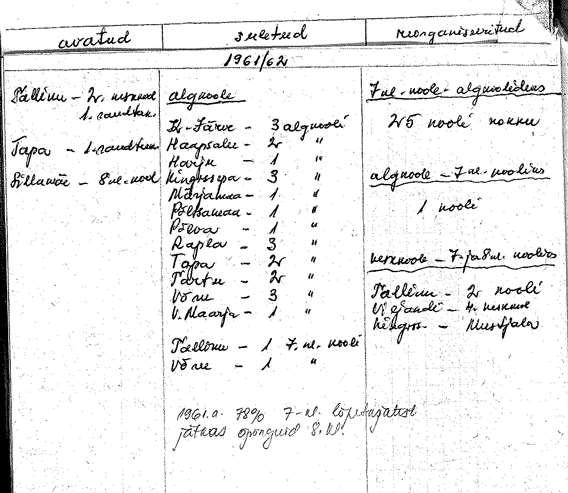 avatud
suletud
reorganiseeritud
1961/62
Tallinn - 2 keskkool
1. raudtee
Tapa - 1. raudtee
Sillamäe - 8 kl. kool
algkoole
K-Järve - 3 algkooli
Haapsalu - 2 "
Harju - 1 "
Kingissepa - 3 "
Märjamaa - 1 "
Põltsamaa - 1 "
Põlva - 1 "
Rapla - 3 "
Tapa - 2 "
Tartu - 2 "
Võru - 3 "
V. Maarja - 1 "
Tallinn - 1 7. kl. kooli
Võru - 1 "
1961.a. 78% 7-kl. lõpetajatest
jätkas õpinguid 8. kl.
7 kl. koole - algkoolideks
25 kooli kokku
algkoole - 7-kl. kooliks
1 kooli
keskkoole - 7- ja 8 kl. kooliks
Tallinn - 2 kooli
Viljandi - 4. keskkool
Kingiss. - Mustjala